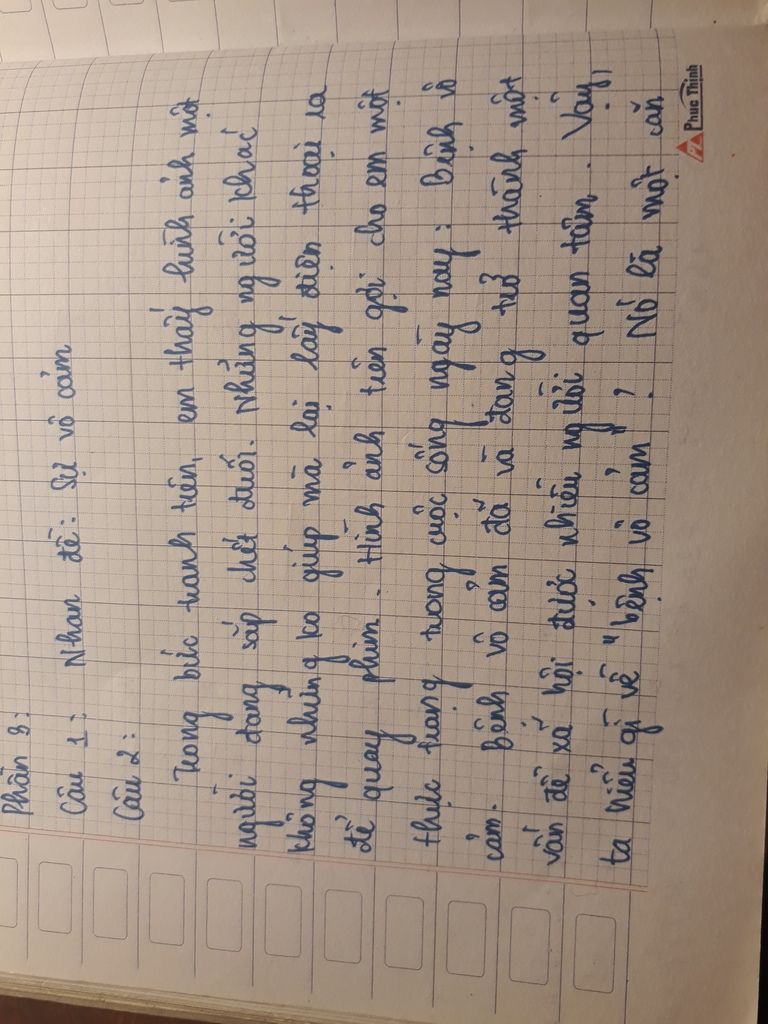 Phần 3:
Câu 1: Nhan đề: Sự vô cảm
Câu 2:
Trong bức tranh trên, em thấy hình ảnh một
người đang sắp chết đuối. Những người khác
không những ko giúp mà lại lấy điện thoại ra
để quay phim. Hình ảnh trên gợi cho em một
thực trạng trong cuộc sống ngày nay: Bệnh vô
cảm. Bệnh vô cảm đã và đang trở thành một
vấn đề xã hội được nhiều người quan tâm. Vậy,
ta hiểu gì về "bệnh vô cảm"? Nó là một căn
Phuc Thịnh